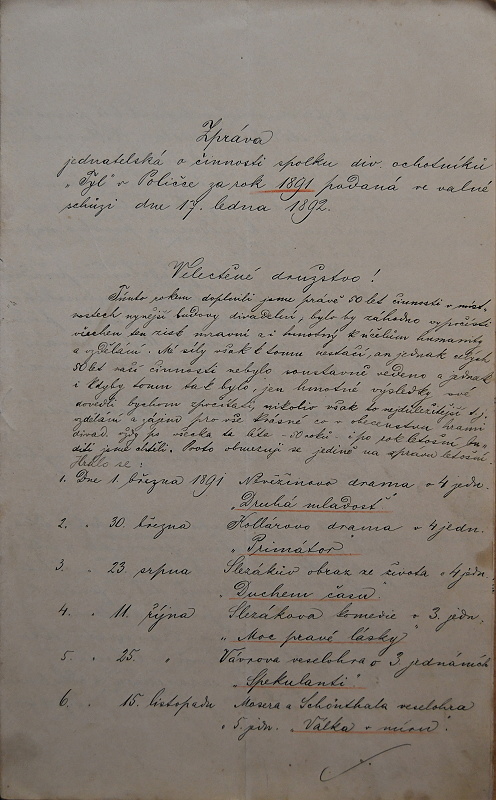 Zpráva
jednatelská o činnosti spolku div. ochotníků
„Tyl" v Poličce za rok 1891 podaná ve valné
schůzi dne 17. ledna 1892.
Velectěné družstvo!
Tímto rokem doplnili jsme právě 50 let činnosti v míst-
nostech nynější budovy divadelní, bylo by záhodno vypočísti
všechen ten zisk mravní a i hmotný k účelům humanity
a vzdělání. Mé síly však k tomu nestačí, an jednak celých
50 let naší činnosti nebylo soustavně vedeno a jednak
i kdyby tomu tak bylo, jen hmotné výsledky
dovedli bychom spočítati, nikoliv však to nejdůležitější t.j.
vzdělání a zájmu pro vše krásné co v obecenstvu námi
divad. vždy po všecka ta léta - 50 roků - i po rok letošní
jsme chtěli. Proto obmezuji se jedině na zprávu letošní.
Hrálo se:
1. Dne 1. března 1891 drama o 4 jedn.
„Druhá mladost"
2. " 30. března Kollárovo drama v 4 jedn.
„Primátor"
3. " 23. srpna Slezákův obraz ze života o 4 jedn.
„Duchem času"
4. " 11. října Slezákova komedie v 3. jedn.
„Moc pravé lásky"
5. " 25. " Vávrova veselohra o 3 jednáních
„Spekulanti"
6. " 15. listopadu Mosera a Schönthala veselohra
v 5. jedn. „Válka v míru".